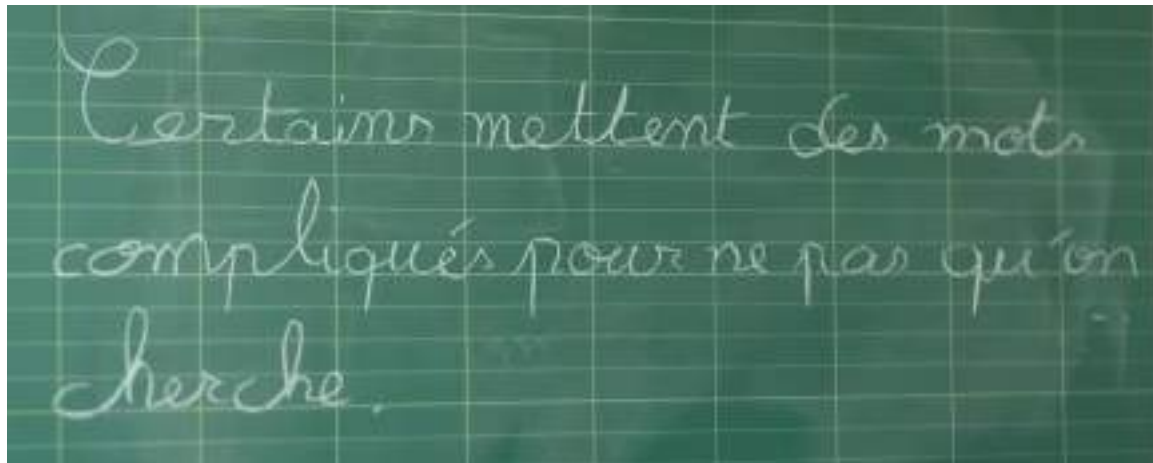 Certains mettent des mots
compliqués pour ne pas qu'on
cherche.